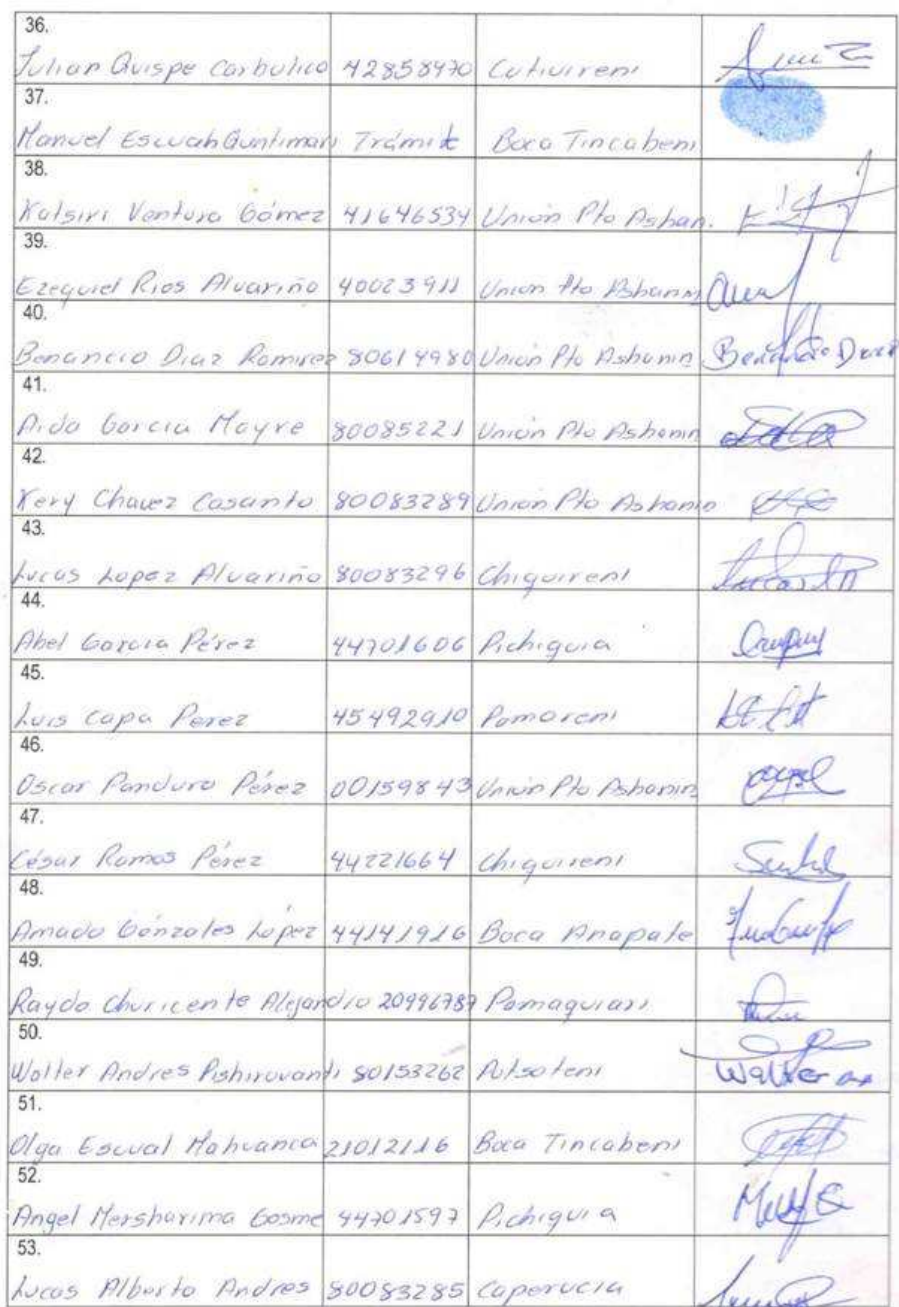 36.
Julian Quispe Carbolico 42858470 Cutivireni
37.
Manuel Trámite Boca Tincabeni
38.
Katsiri Ventura Gómez 41646534 Unión Pto Ashan.
39.
Ezequiel Rios Alvariño 40023911 Unión Pto Ashanin
40.
Benancio Diaz Ramirez 80614980 Unión Pto Ashanin Benancio
41.
Aida Garcia Mayre 80085221 Unión Pto Ashanin
42.
Kery Chavez Casanto 80083289 Unión Pto Ashanin
43.
Lucas Lopez Alvariño 80083296 Chiquireni
44.
Abel Garcia Pérez 44701606 Pichiquia
45.
Luis Capa Perez 45492910 Pomareni
46.
Oscar Panduro Pérez 00159843 Unión Pto Ashanin
47.
César Ramos Pérez 44221664 Chiquireni
48.
Amado Gónzales López 44141916 Boca Anapate
49.
Raydo Churicente Alejandro 20996787 Pamaquiari
50.
Walter Andres Pishirovanti 80153262 Potsoteni Walter
51.
Olga Escual Mahuanca 21012116 Boca Tincabeni
52.
Angel Mersharima Gosme 44701597 Pichiquia
53.
Lucas Alberto Andres 80083285 Caperucia